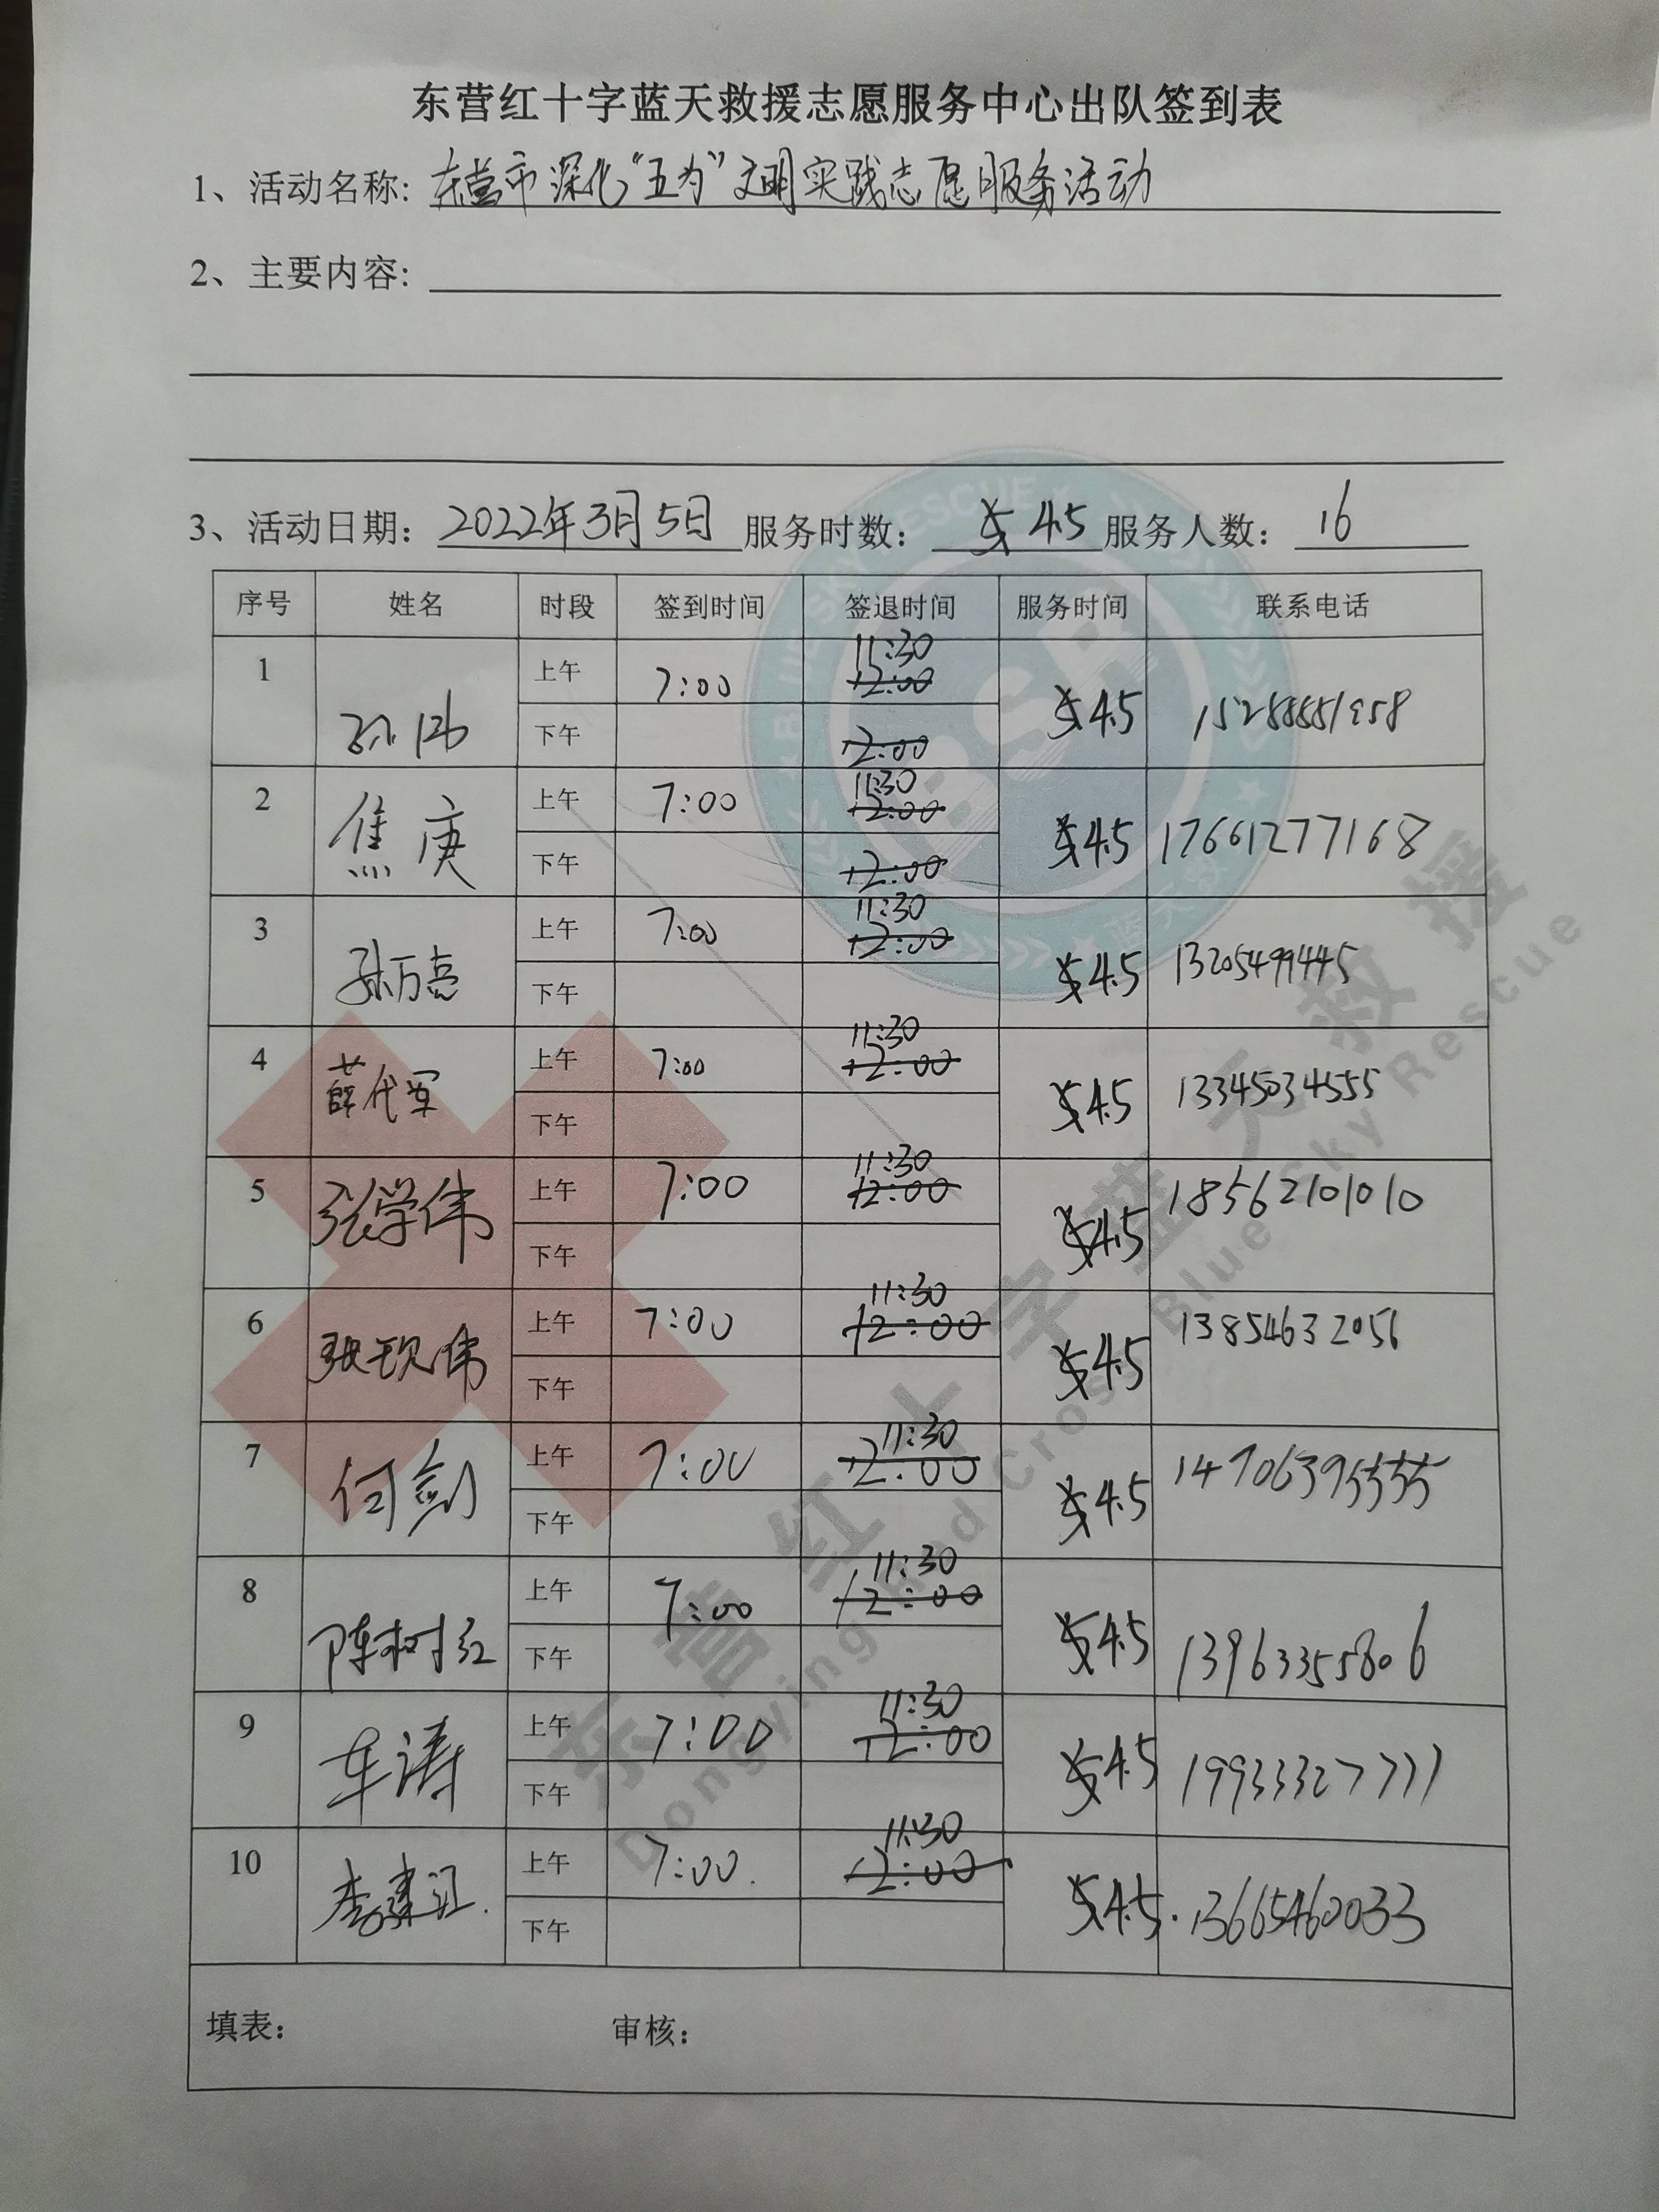 东营红十字蓝天救援志愿服务中心出队签到表
1、活动名称: 东营市深化“五为”文明实践志愿服务活动
2、主要内容:
3、活动日期: 2022年3月5日 服务时数: 5 4.5 服务人数: 16
序号 姓名 时段 签到时间 签退时间 服务时间 联系电话
11:30
1 上午 7:00 12:00
孙 5 4.5
下午 12:00
11:30
2 上午 7:00 12:00
焦庚 5 4.5 17661277168
下午 12:00
11:30
3 上午 7:00 12:00
孙万亮 5 4.5 13205499445
下午
11:30
4 上午 7:00 12:00
薛代军 5 4.5 13345034555
下午
11:30
5 上午 7:00 12:00
张学伟 5 4.5 18562101010
下午
11:30
6 上午 7:00 12:00
张现伟 5 4.5 13854632056
下午
11:30
7 上午 7:00 12:00
何剑 5 4.5 14706395555
下午
11:30
8 上午 7:00 12:00
陈树红 5 4.5 13963355806
下午
11:30
9 上午 7:00 12:00
车涛 5 4.5 19933327777
下午
11:30
10 上午 7:00 12:00
李建江 5 4.5 13665460033
下午
填表: 审核:
BLUE SKY RESCUE
BSR
蓝天救援
东营红十字蓝天救援
Dongying Red Cross Blue Sky Rescue